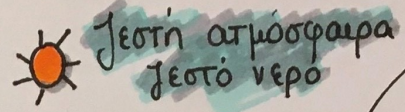 ζεστή ατμόσφαιρα
ζεστό νερό